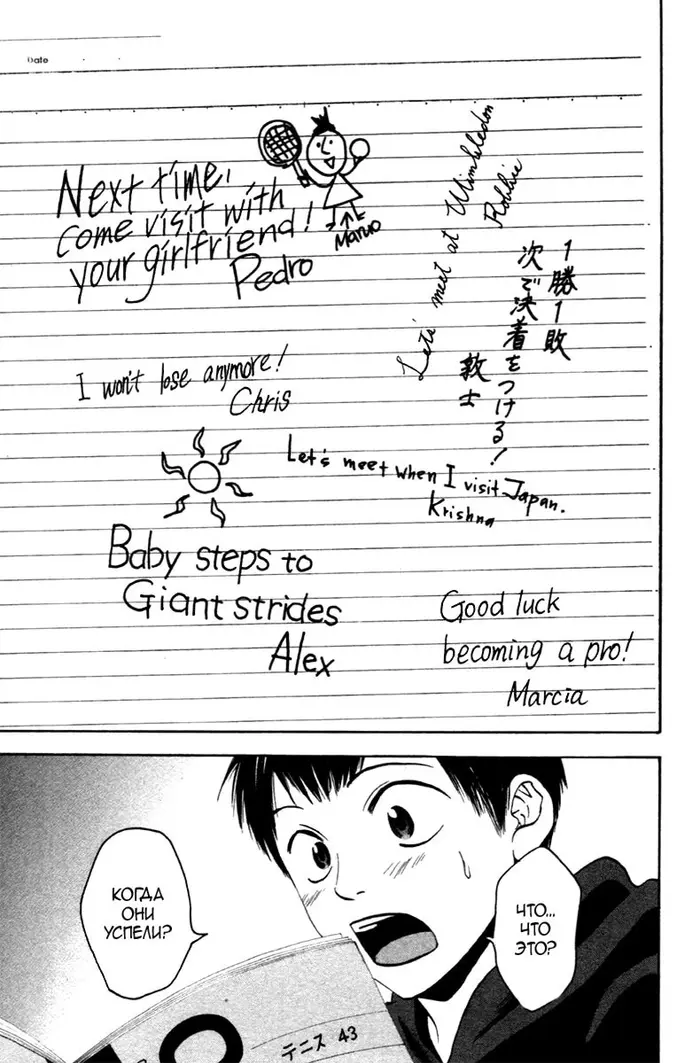 Date
Next time,
come visit with
your girlfriend!
Pedro
Maruo
Lets' meet at Wimbledon
Robbie
1勝1敗
次で決着をつける!
敦士
I won't lose anymore!
Chris
Let's meet when I visit Japan.
Krishna
Baby steps to
Giant strides
Alex
Good luck
becoming a pro!
Marcia
ЧТО...
ЧТО
ЭТО?
КОГДА
ОНИ
УСПЕЛИ?
テニス 43